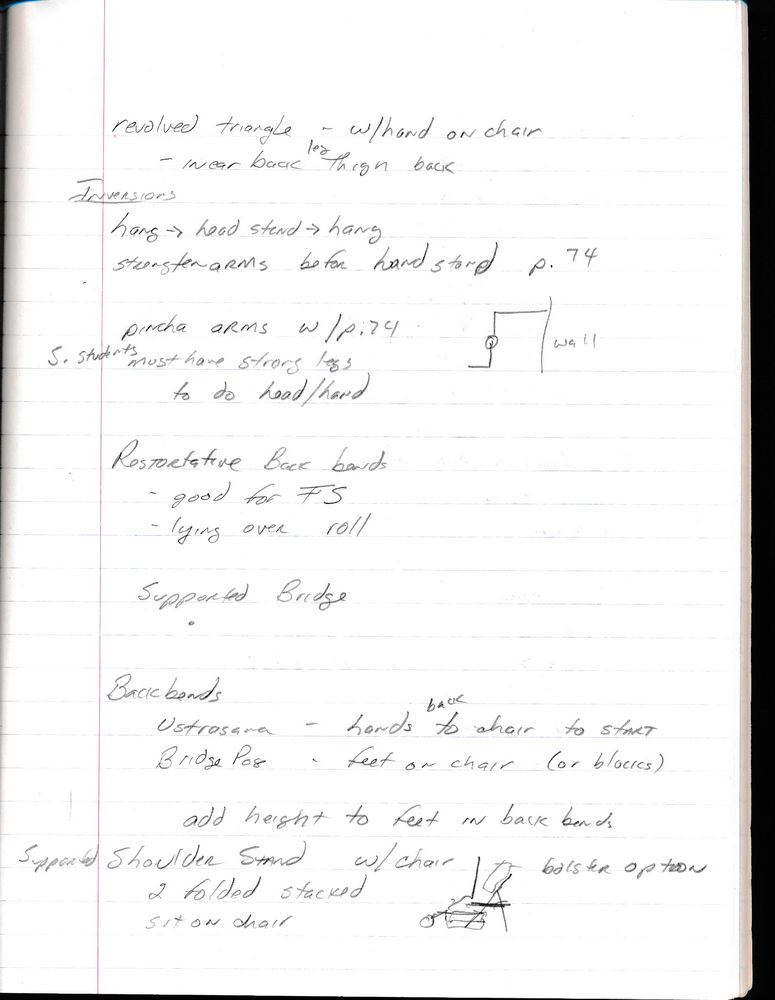 revolved triangle - w/hand on chair
- inear back leg thign back
Inversions
hang → head stand → hang
strengten arms befor hand stand p. 74
pincha arms w/p.74
wall
S. students must have strong legs
to do head/hand
Restortative Back bends
- good for FS
- lying over roll
Supported Bridge
Backbends
Ustrasana - hands back to chair to start
Bridge Pose - feet on chair (or blocks)
add height to feet in back bends
Supported Shoulder Stand w/chair bolster option
2 folded stacked
sit on chair